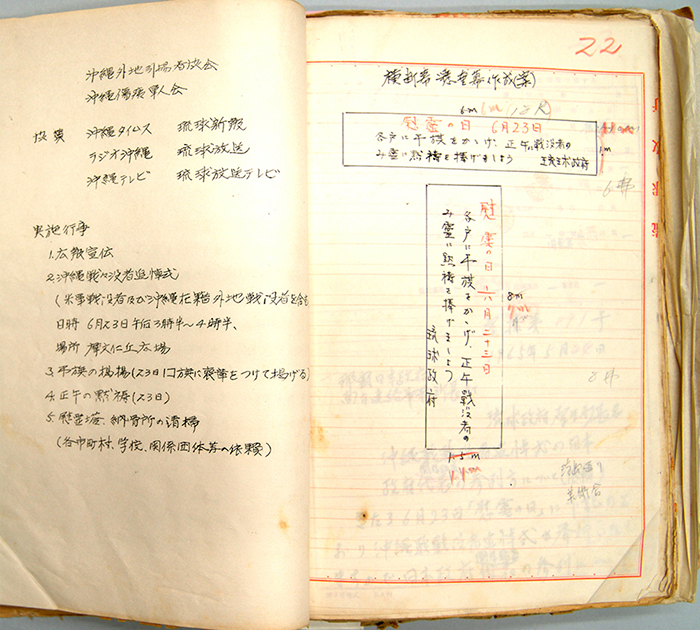 沖縄外地引揚者協会
沖縄傷痍軍人会
協賛 沖縄タイムス 琉球新報
ラジオ沖縄 琉球放送
沖縄テレビ 琉球放送テレビ
実施行事
1. 広報宣伝
2. 沖縄戦々没者追悼式
(米軍戦没者及び沖縄在籍外地戦々没者を含む)
日時 6月23日午后3時半〜4時半、
場所 摩文仁丘広場
3. 弔旗の掲揚(23日1口旗に喪章をつけて揚げる)
4. 正午の黙祷(23日)
5. 慰霊塔、納骨所の清掃
(各市町村、学校、関係団体等へ依頼)
22
横断幕懸垂幕作成(案)
6m 6m (18尺)
慰霊の日 6月23日
各戸に弔旗をかゝげ、正午に戦没者の
み霊に黙祷を捧げましょう 琉球政府
1m
6 枚
慰霊の日 六月二十三日
各戸に弔旗をかゝげ、正午戦没者の
み霊に黙祷を捧げましょう
琉球政府
8m
7m
8 枚
1.5m
1.4m